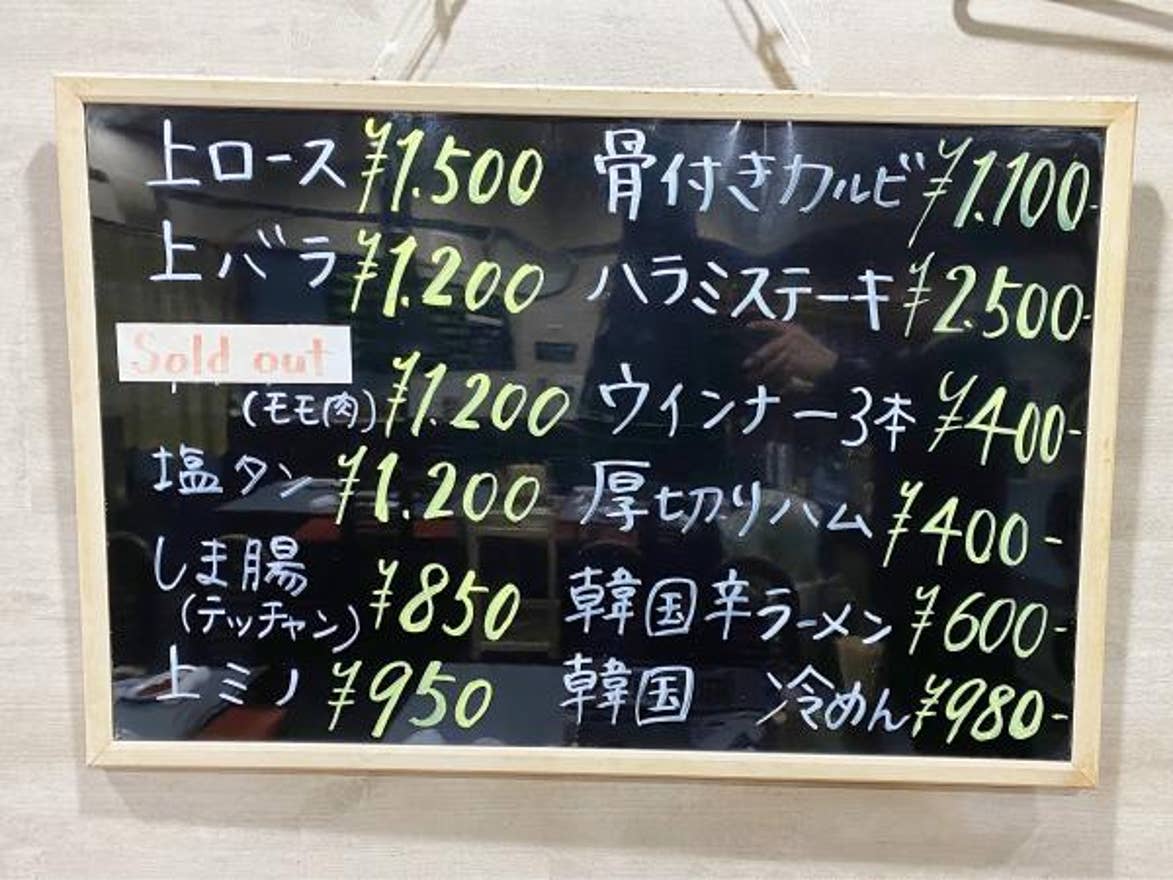 上ロース ¥1.500
上バラ ¥1.200
Sold out
(モモ肉) ¥1.200
塩タン ¥1.200
しま腸
(テッチャン) ¥850
上ミノ ¥950
骨付きカルビ ¥1.100-
ハラミステーキ ¥2.500-
ウインナー3本 ¥400-
厚切りハム ¥400-
韓国辛ラーメン ¥600-
韓国 冷めん ¥980-